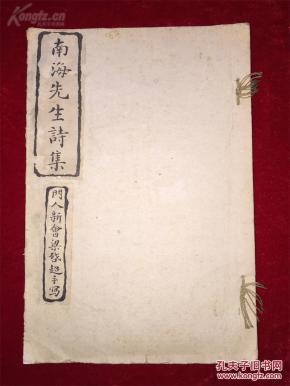 Kongfz.cn
南海先生詩集
門人新會梁啟超手寫
孔夫子旧书网